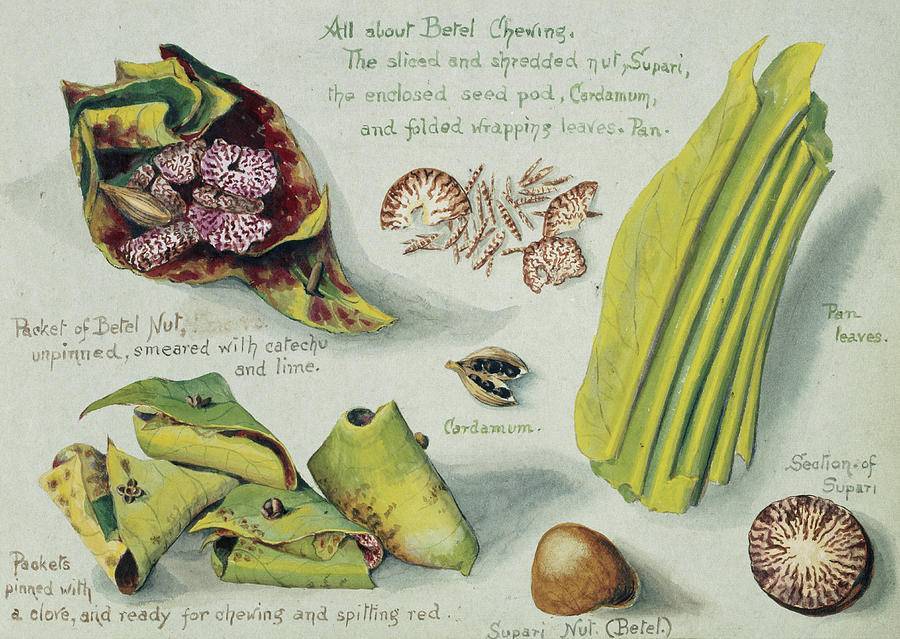 All about Betel Chewing.
The sliced and shredded nut, Supari,
the enclosed seed pod, Cardamum,
and folded wrapping leaves. Pan.
Packet of Betel Nut,
unpinned, smeared with catechu
and lime.
Pan
leaves.
Cardamum.
Section of
Supari
Packets
pinned with
a clove, and ready for chewing and spitting red.
Supari Nut. (Betel.)